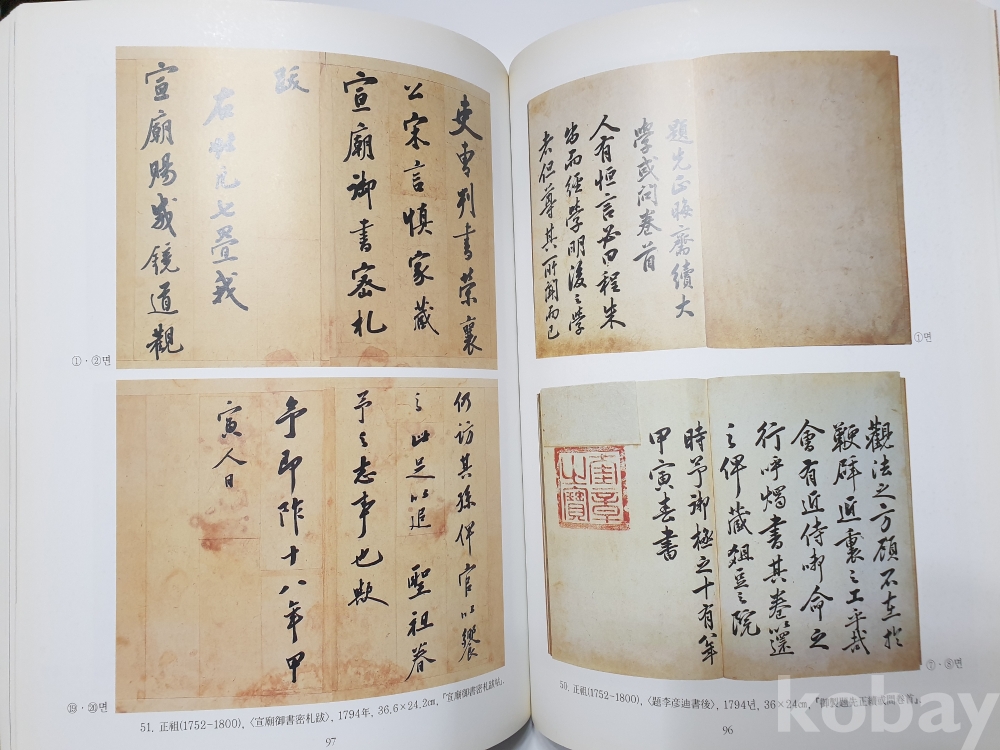 題先正晦齋續大
學或問卷首
人有恒言必曰程朱
出而經學明後之學
者但尊其所聞而已
①면
觀法之方顧不在於
鞭辟近裏之工乎哉
會有近侍啣命之
行呼燭書其卷以還
之俾藏俎豆之院
時予御極之十有八年
甲寅春書
奎章之寶
⑦·⑧면
50. 正祖(1752~1800), 〈題李彦迪書後〉, 1794년, 36×24㎝, 『御製題先正續或問卷首』.
96
吏曹判書榮襄
公宋言愼家藏
宣廟御書密札
跋
右帖凡七疊我
宣廟賜咸鏡道觀
①·②면
仍訪其孫俾官以饗
之此足以追 聖祖眷
予之志事也歟
予即阼十八年甲
寅人日
⑲·⑳면
51. 正祖(1752~1800), 〈宣廟御書密札跋〉, 1794年, 36.6×24.2㎝, 『宣廟御書密札跋帖』.
97
kobay